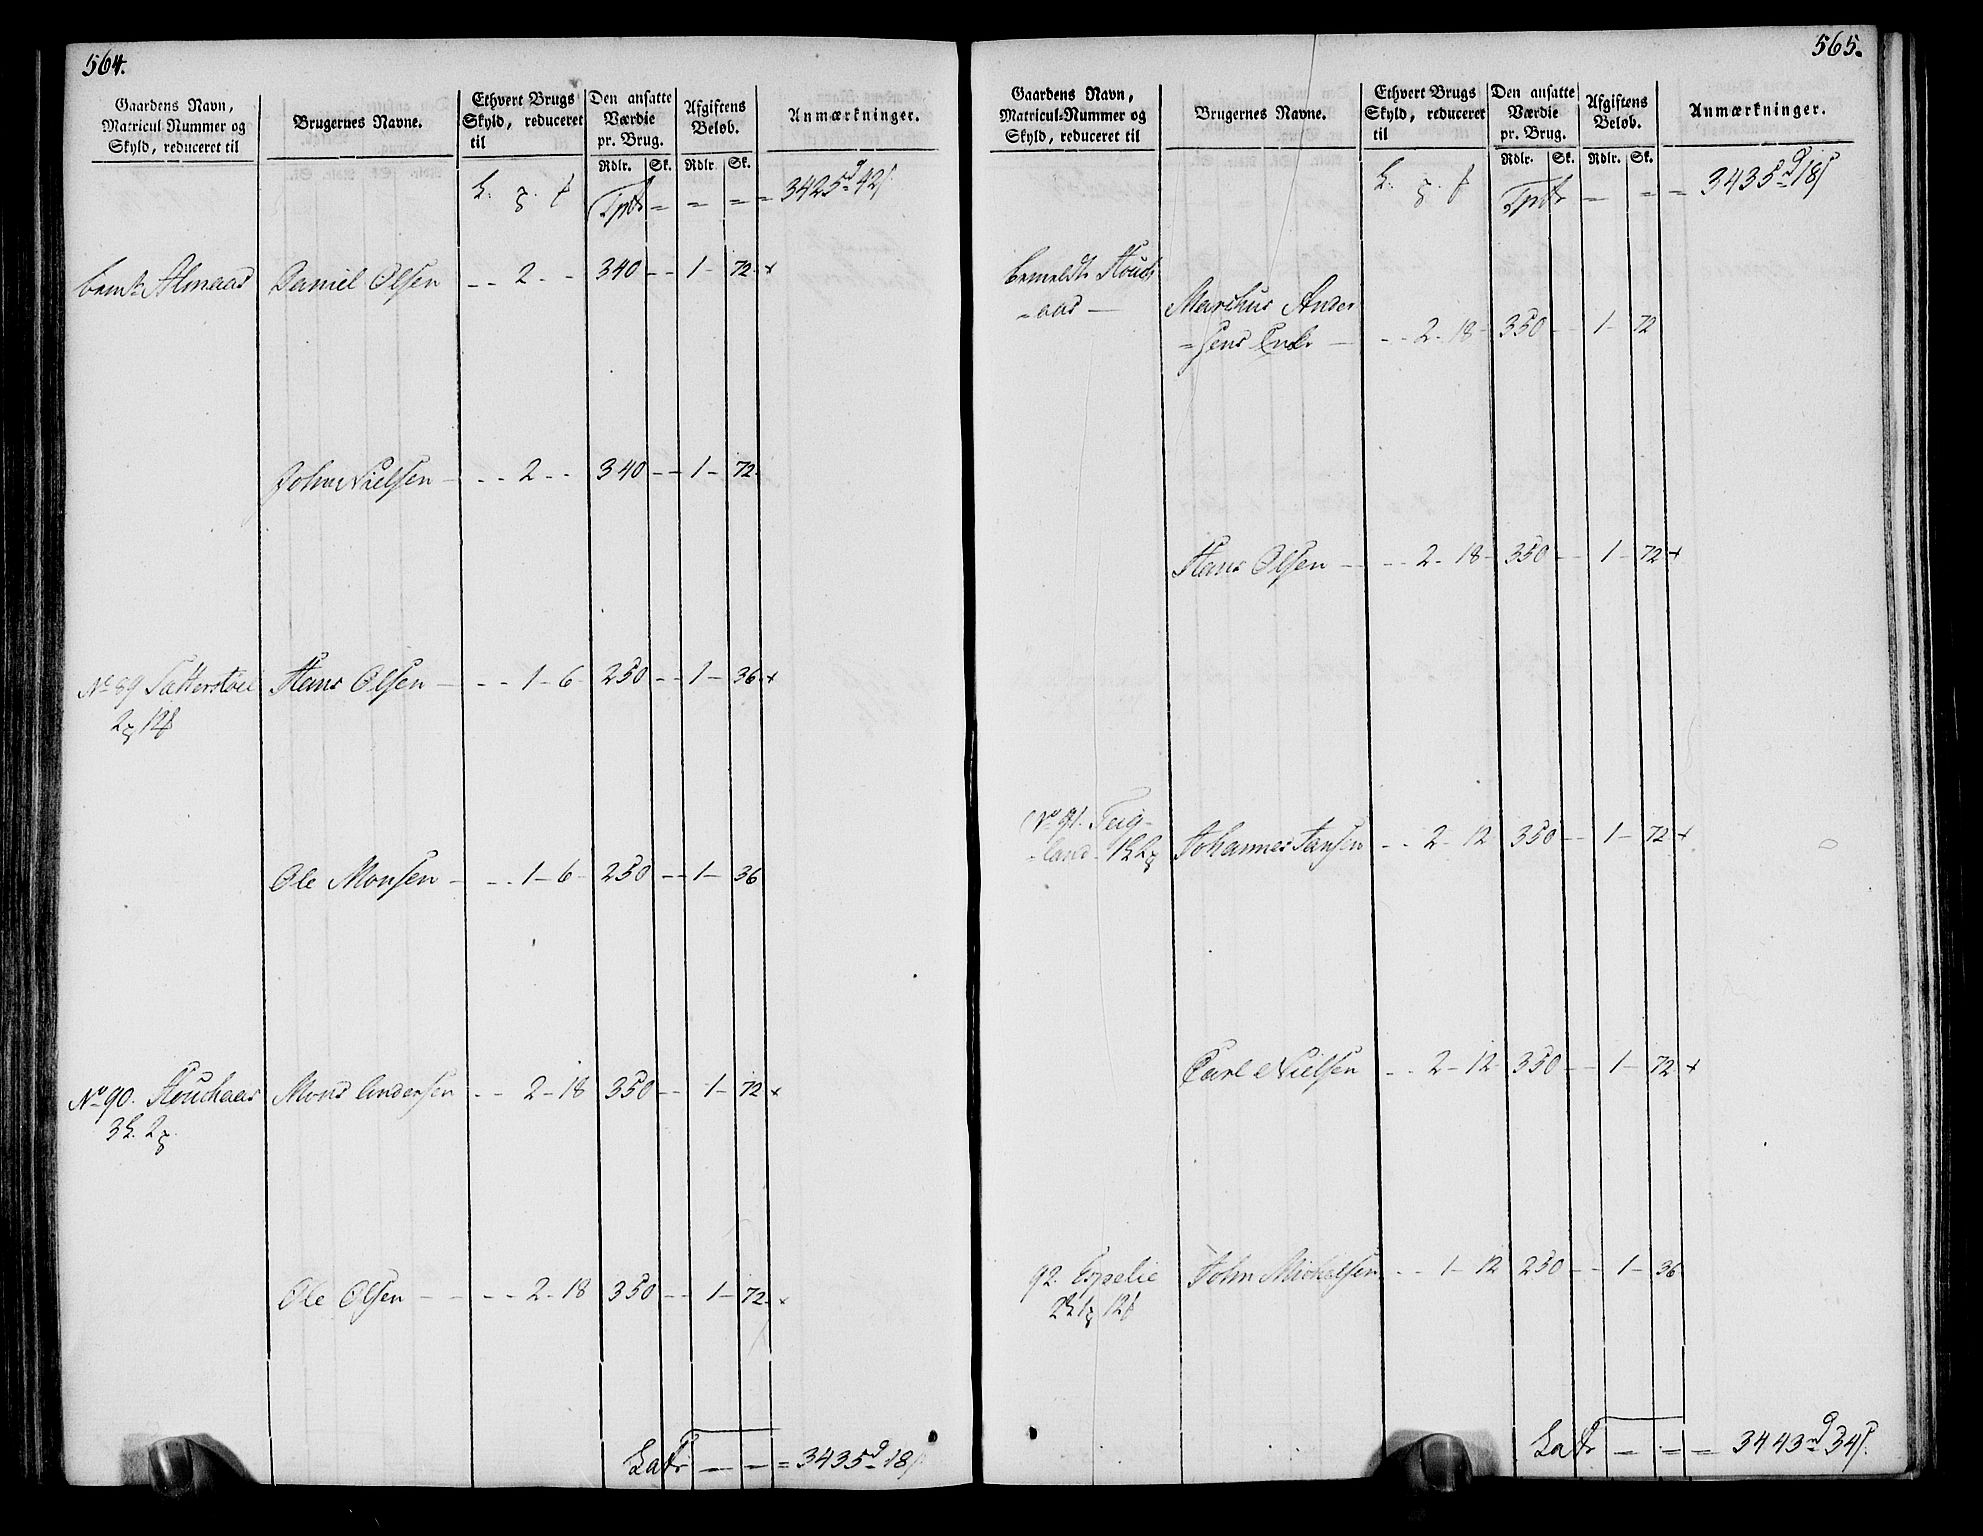 564.
Gaardens Navn,
Matricul-Nummer og
Skyld, reduceret til
Brugernes Navne.
Ethvert Brugs
Skyld, reduceret
til
Den ansatte
Værdie
pr. Brug.
Rdlr. Sk.
Afgiftens
Beløb.
Rdlr. Sk.
Anmærkninger.
Tptr = = = = 3425d 42s
Almaas Daniel Olsen - - 2 - - 340 - - 1 - 72 +
John Nielsen - - - 2 - - 340 - - 1 - 72
No 89 Sætterstøel Hans Olsen - - - 1 - 6 250 - - 1 - 36 +
Ole Monsen - - - 1 - 6 - 250 - - 1 - 36
No 90. Houchaas Mons Andersen - - 2 - 18 350 - - 1 - 72 +
Ole Olsen - - - - 2 - 18 350 - - 1 - 72 +
Latr - - = 3435d 18s
565.
Gaardens Navn,
Matricul-Nummer og
Skyld, reduceret til
Brugernes Navne.
Ethvert Brugs
Skyld, reduceret
til
Den ansatte
Værdie
pr. Brug.
Rdlr. Sk.
Afgiftens
Beløb.
Rdlr. Sk.
Anmærkninger.
Tptr = = = 3435d 18s
bemeldte Houch
=aas - Marthus Ander
=sens Enke - - - 2 - 18 - 350 - - 1 - 72
Hans Olsen - - - 2 - 18 - 350 - - 1 - 72 +
No 91. Teig-
=land Johannes Jansen - - 2 - 12 350 - - 1 - 72 +
Carl Nielsen - - 2 - 12 - 350 - - 1 - 72 +
92. Espelie John Michelsen - - 1 - 12 250 - - 1 - 36
Latr - = = 3443d 34s